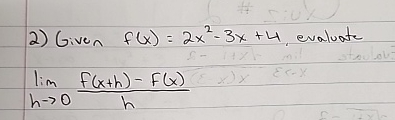 2) Given f(x) = 2x² - 3x + 4, evaluate
lim h->0 f(x+h) - f(x) / h